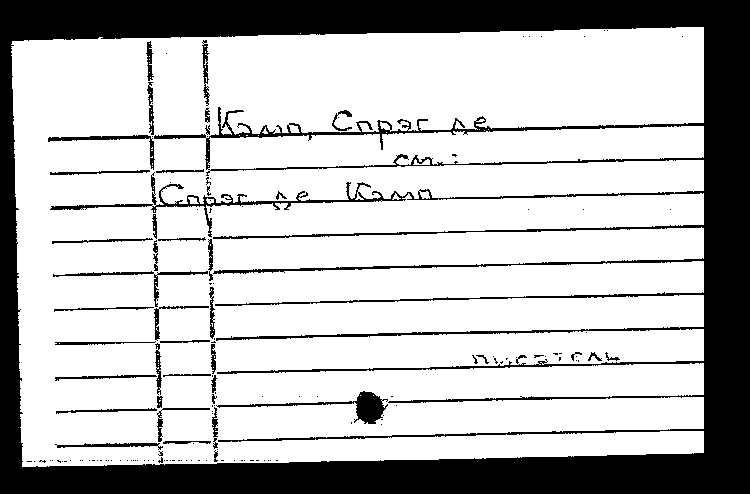 Кэмп, Спрэг де
см.:
Спрэг де Кэмп
писатель